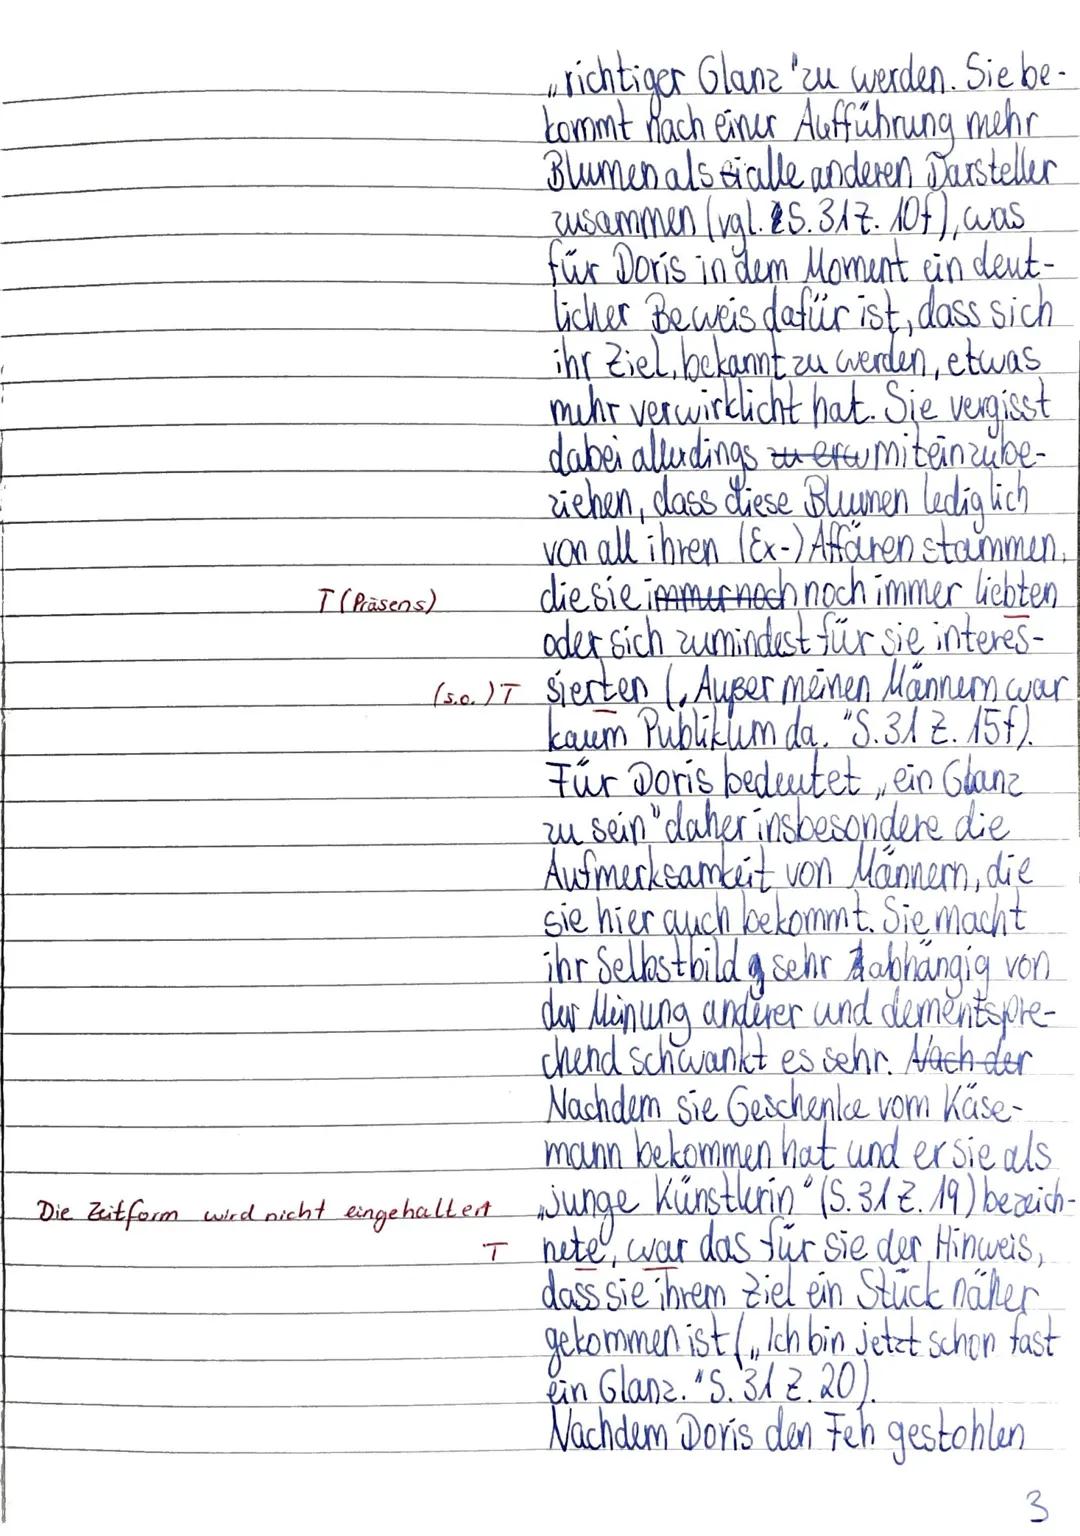 „richtiger Glanz" zu werden. Sie be-
kommt nach einer Aufführung mehr
Blumen als alle anderen Darsteller
zusammen (vgl. S. 31 Z. 10f), was
für Doris in dem Moment ein deut-
licher Beweis dafür ist, dass sich
ihr Ziel, bekannt zu werden, etwas
mehr verwirklicht hat. Sie vergisst
dabei allerdings zu erw miteinzube-
ziehen, dass diese Blumen lediglich
von all ihren (Ex-) Affären stammen,
T (Präsens) die sie immer noch noch immer liebten
oder sich zumindest für sie interes-
(s.o.) T sierten („Außer meinen Männern war
kaum Publikum da." S. 31 Z. 15f).
Für Doris bedeutet „ein Glanz
zu sein" daher insbesondere die
Aufmerksamkeit von Männern, die
sie hier auch bekommt. Sie macht
ihr Selbstbild sehr abhängig von
der Meinung anderer und dementspre-
chend schwankt es sehr. Nach der
Nachdem sie Geschenke vom Käse-
mann bekommen hat und er sie als
Die Zeitform wird nicht eingehalten „junge Künstlerin" (S. 31 Z. 19) bezeich-
T nete, war das für sie der Hinweis,
dass sie ihrem Ziel ein Stück näher
gekommen ist („Ich bin jetzt schon fast
ein Glanz." S. 31 Z. 20).
Nachdem Doris den Feh gestohlen
3